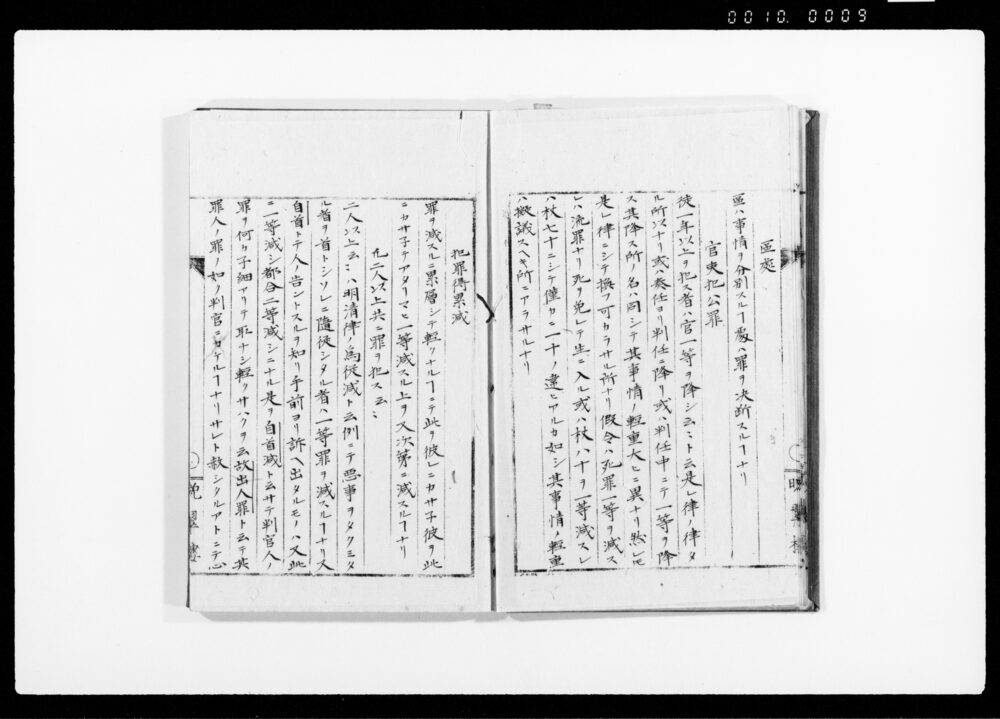 0010. 0009
區處
區ハ事情ヲ分別スルヿ處ハ罪ヲ决断スルヿナリ
官吏犯公罪
徒一年以上ヲ犯ス者ハ官一等ヲ降シ云〻ト云是レ律ノ律タ
ル所以ナリ或ハ奏任ヨリ判任ニ降リ或ハ判任中ニテ一等ヲ降
ス其降ス所ノ名ハ同シテ其事情ノ軽重大ヒニ異ナリ然レ𪜈
是レ律ニシテ撰フ可カラサル所ナリ假令ハ死罪一等ヲ減ス
レハ流罪ナリ死ヲ免レテ生ニ入ル或ハ杖八十ヲ一等減スレ
ハ杖七十ニシテ僅カニ一十ノ違ヒアルカ如シ其事情ノ軽重
ハ擬議スヘキ所ニアラサルナリ
犯罪得累減
罪ヲ減スルニ累層シテ軽クナルヿニテ此ヲ彼レニカサ子彼ヲ此
ニカサ子テアタリマヒ一等減スル上ヲ又次第ニ減スルヿナリ
凡二人以上共ニ罪ヲ犯ス云〻
二人以上云〻ハ明清律ノ為従減ト云例ニテ悪事ヲタクミタ
ル者ヲ首トシソレニ隨従シタル者ハ一等罪ヲ減スルヿナリ又
自首トテ人ノ告ントスルヲ知リ手前ヨリ訴ヘ出タルモノハ又此
ニ一等減シ都合二等減シニナル是ヲ自首減ト云サテ判官人ノ
罪ヲ何ケ子細アリテ取ナシ軽クサハクヲ云故出入罪ト云テ其
罪人ノ罪ノ如ノ判官ニカケルヿナリサレト赦シタルアトニテ心
晩翠樓